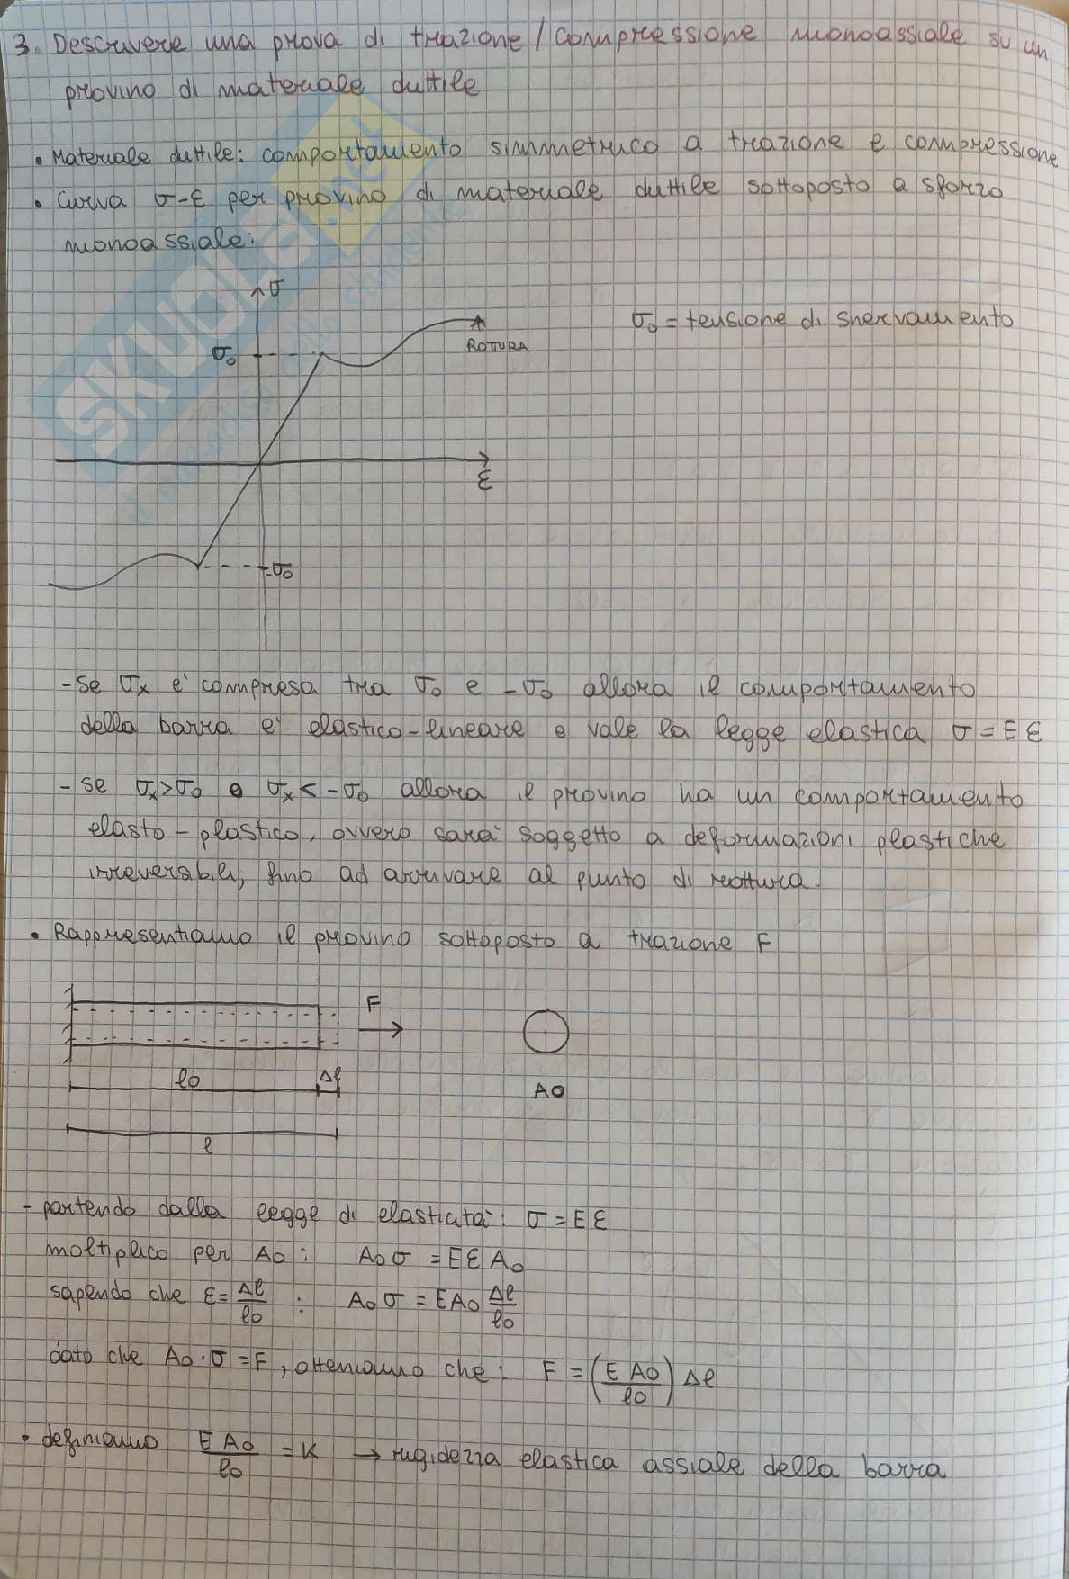 3. Descrivere una prova di trazione / compressione monoassiale su un
provino di materiale duttile
• Materiale duttile: comportamento simmetrico a trazione e compressione
• Curva σ-ε per provino di materiale duttile sottoposto a sforzo
monoassiale:
σ
σ₀ = tensione di snervamento
σ₀
ROTTURA
ε
-σ₀
- Se σx è compresa tra σ₀ e -σ₀ allora il comportamento
della barra è elastico-lineare e vale la legge elastica σ = Eε
- se σx>σ₀ o σx<-σ₀ allora il provino ha un comportamento
elasto-plastico, ovvero sarà soggetto a deformazioni plastiche
irreversibili, fino ad arrivare al punto di rottura.
• Rappresentiamo il provino sottoposto a trazione F
F
l0 Δl
A0
l
- partendo dalla legge di elasticità: σ = Eε
moltiplico per A0: A₀σ = EεA₀
sapendo che ε = Δl/l0 : A₀σ = EA₀ Δl/l0
dato che A0·σ = F, otteniamo che: F = (E A0/l0) Δl
• definiamo E A0/l0 = K → rigidezza elastica assiale della barra
SKUOLA.net